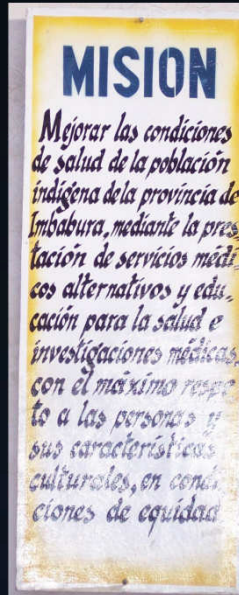 MISION
Mejorar las condiciones
de salud de la población
indígena de la provincia de
Imbabura, mediante la pres
tación de servicios médi-
cos alternativos y edu-
cación para la salud e
investigaciones médicas,
con el máximo respe
to a las personas y
sus características
culturales, en condi
ciones de equidad